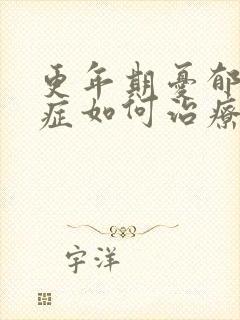 更年期憂郁
症如何治療
宇洋